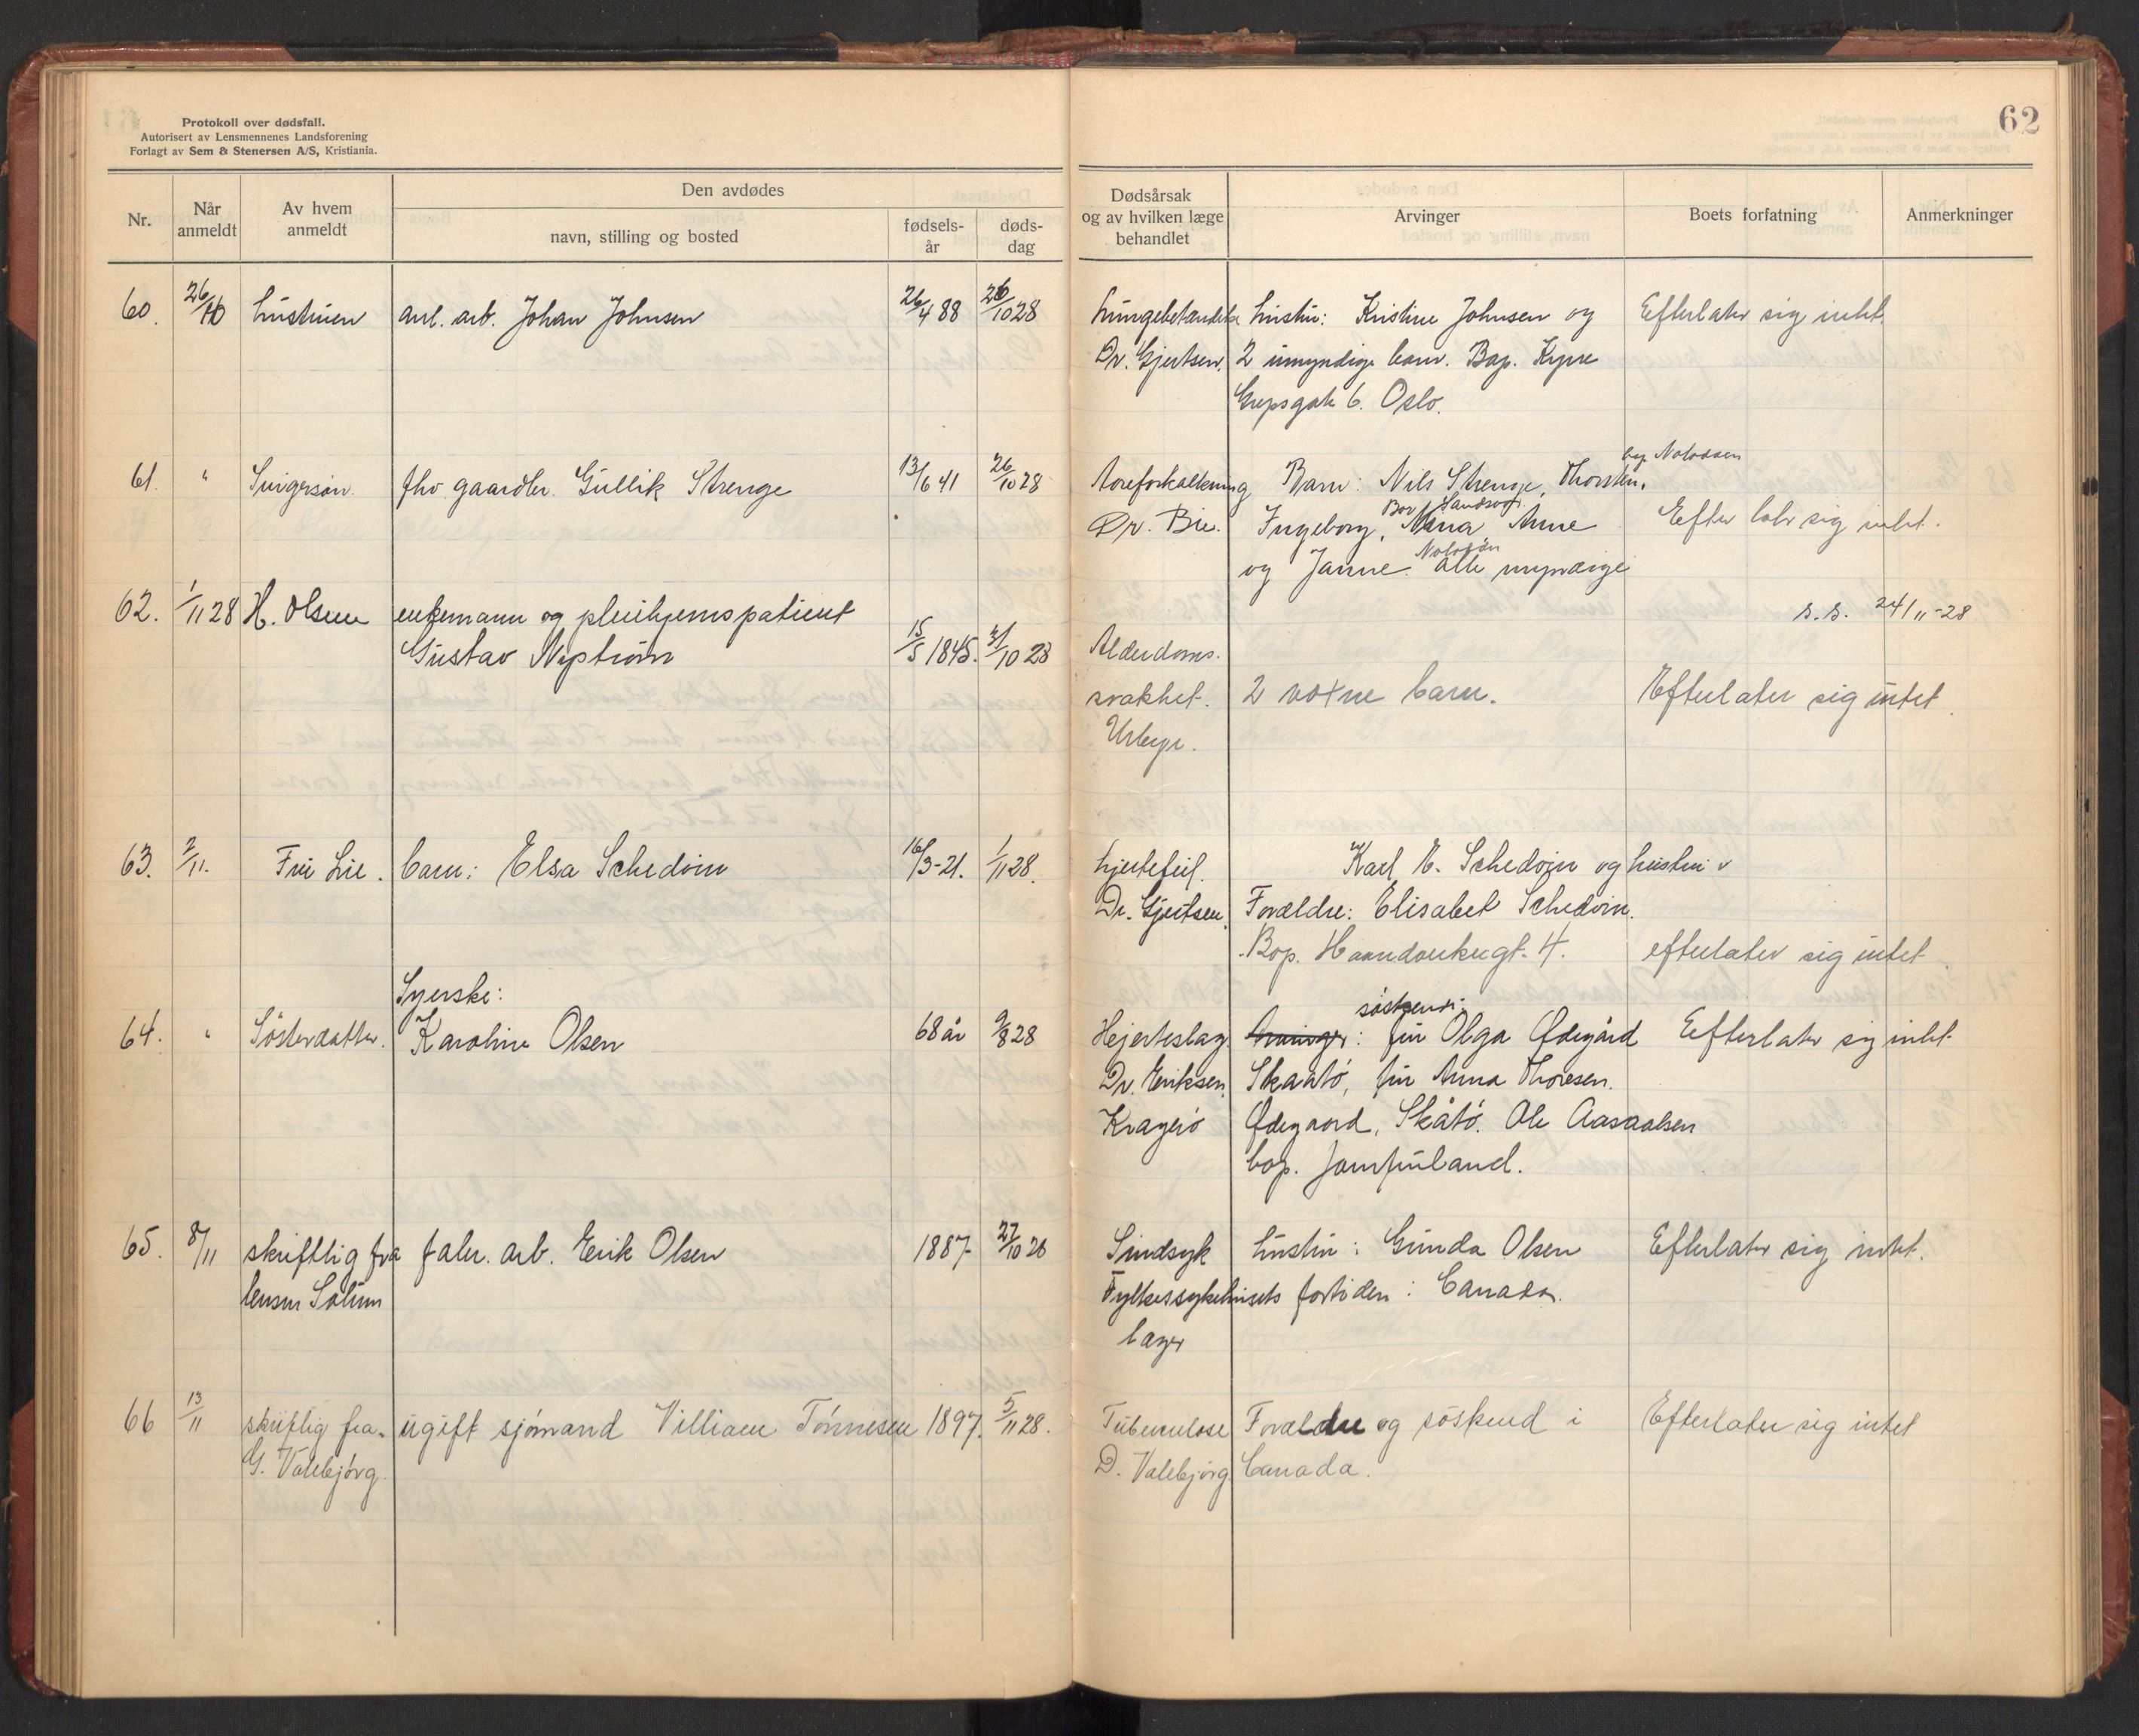 Protokoll over dødsfall.
Autorisert av Lensmennenes Landsforening
Forlagt av Sem & Stenersen A/S, Kristiania.
62
Nr.
Når anmeldt
Av hvem anmeldt
Den avdødes
navn, stilling og bosted
fødsels-år
døds-dag
Dødsårsak og av hvilken læge behandlet
Arvinger
Boets forfatning
Anmerkninger
60. 26/10 hustruen anl. arb. Johan Johnsen 26/4 88 26/10 28 Lungebetændelse hustru: Kristine Johnsen og Efterlater sig intet.
Dr. Gjertsen. 2 umyndige barn. Bop.
6. Oslo.
bop Notodden
61. " Svigersøn. fhv gaardbr. Gullik Strenge 13/6 41 26/10 28 Aareforkalkning Barn: Nils Strenge, Thorsten,
Dr. Bie. Ingeborg, Anne Efterlater sig intet.
og Janne. Alle myndige
62. 1/11 28 H. Olsen enkemann og pleiehjemspatient s.s. 24/11-28
Gustav Nystrøm 15/5 1845. 31/10 28 Alderdoms-
svakhet. 2 voxne barn. Efterlater sig intet.
Urbye.
63. 2/11. Fru Lie. barn: Elsa Schedvin 16/3-21. 1/11 28. hjertefeil. Karl E. Schedvin og hustru
Dr. Gjertsen. Forældre: Elisabet Schedvin.
Bop. Haandverkergt. 4. efterlater sig intet.
Syerske: søskende
64. " Søsterdatter. Karoline Olsen 68 år 9/8 28 Hjerteslag Arvinger: fru Olga Ødegård Efterlater sig intet
Dr. Eriksen. Skaatø, fru Anna Thoresen.
Kragerø Ødegaard, Skåtø. Ole
bop. Jomfruland.
65. 8/11 skriftlig fra fabr. arb. Erik Olsen 1887 27/10 28 Sindsyk hustru: Gunda Olsen Efterlater sig intet.
lensm Solum Fylkessykehusets fortiden: Canada.
læger
66 13/11 skriftlig fra ugift sjømand Villiam Tønnesen 1897. 5/11 28. Tuberculose Forældre og søskend i Efterlater sig intet
G. Valebjørg D. Valebjørg Canada.